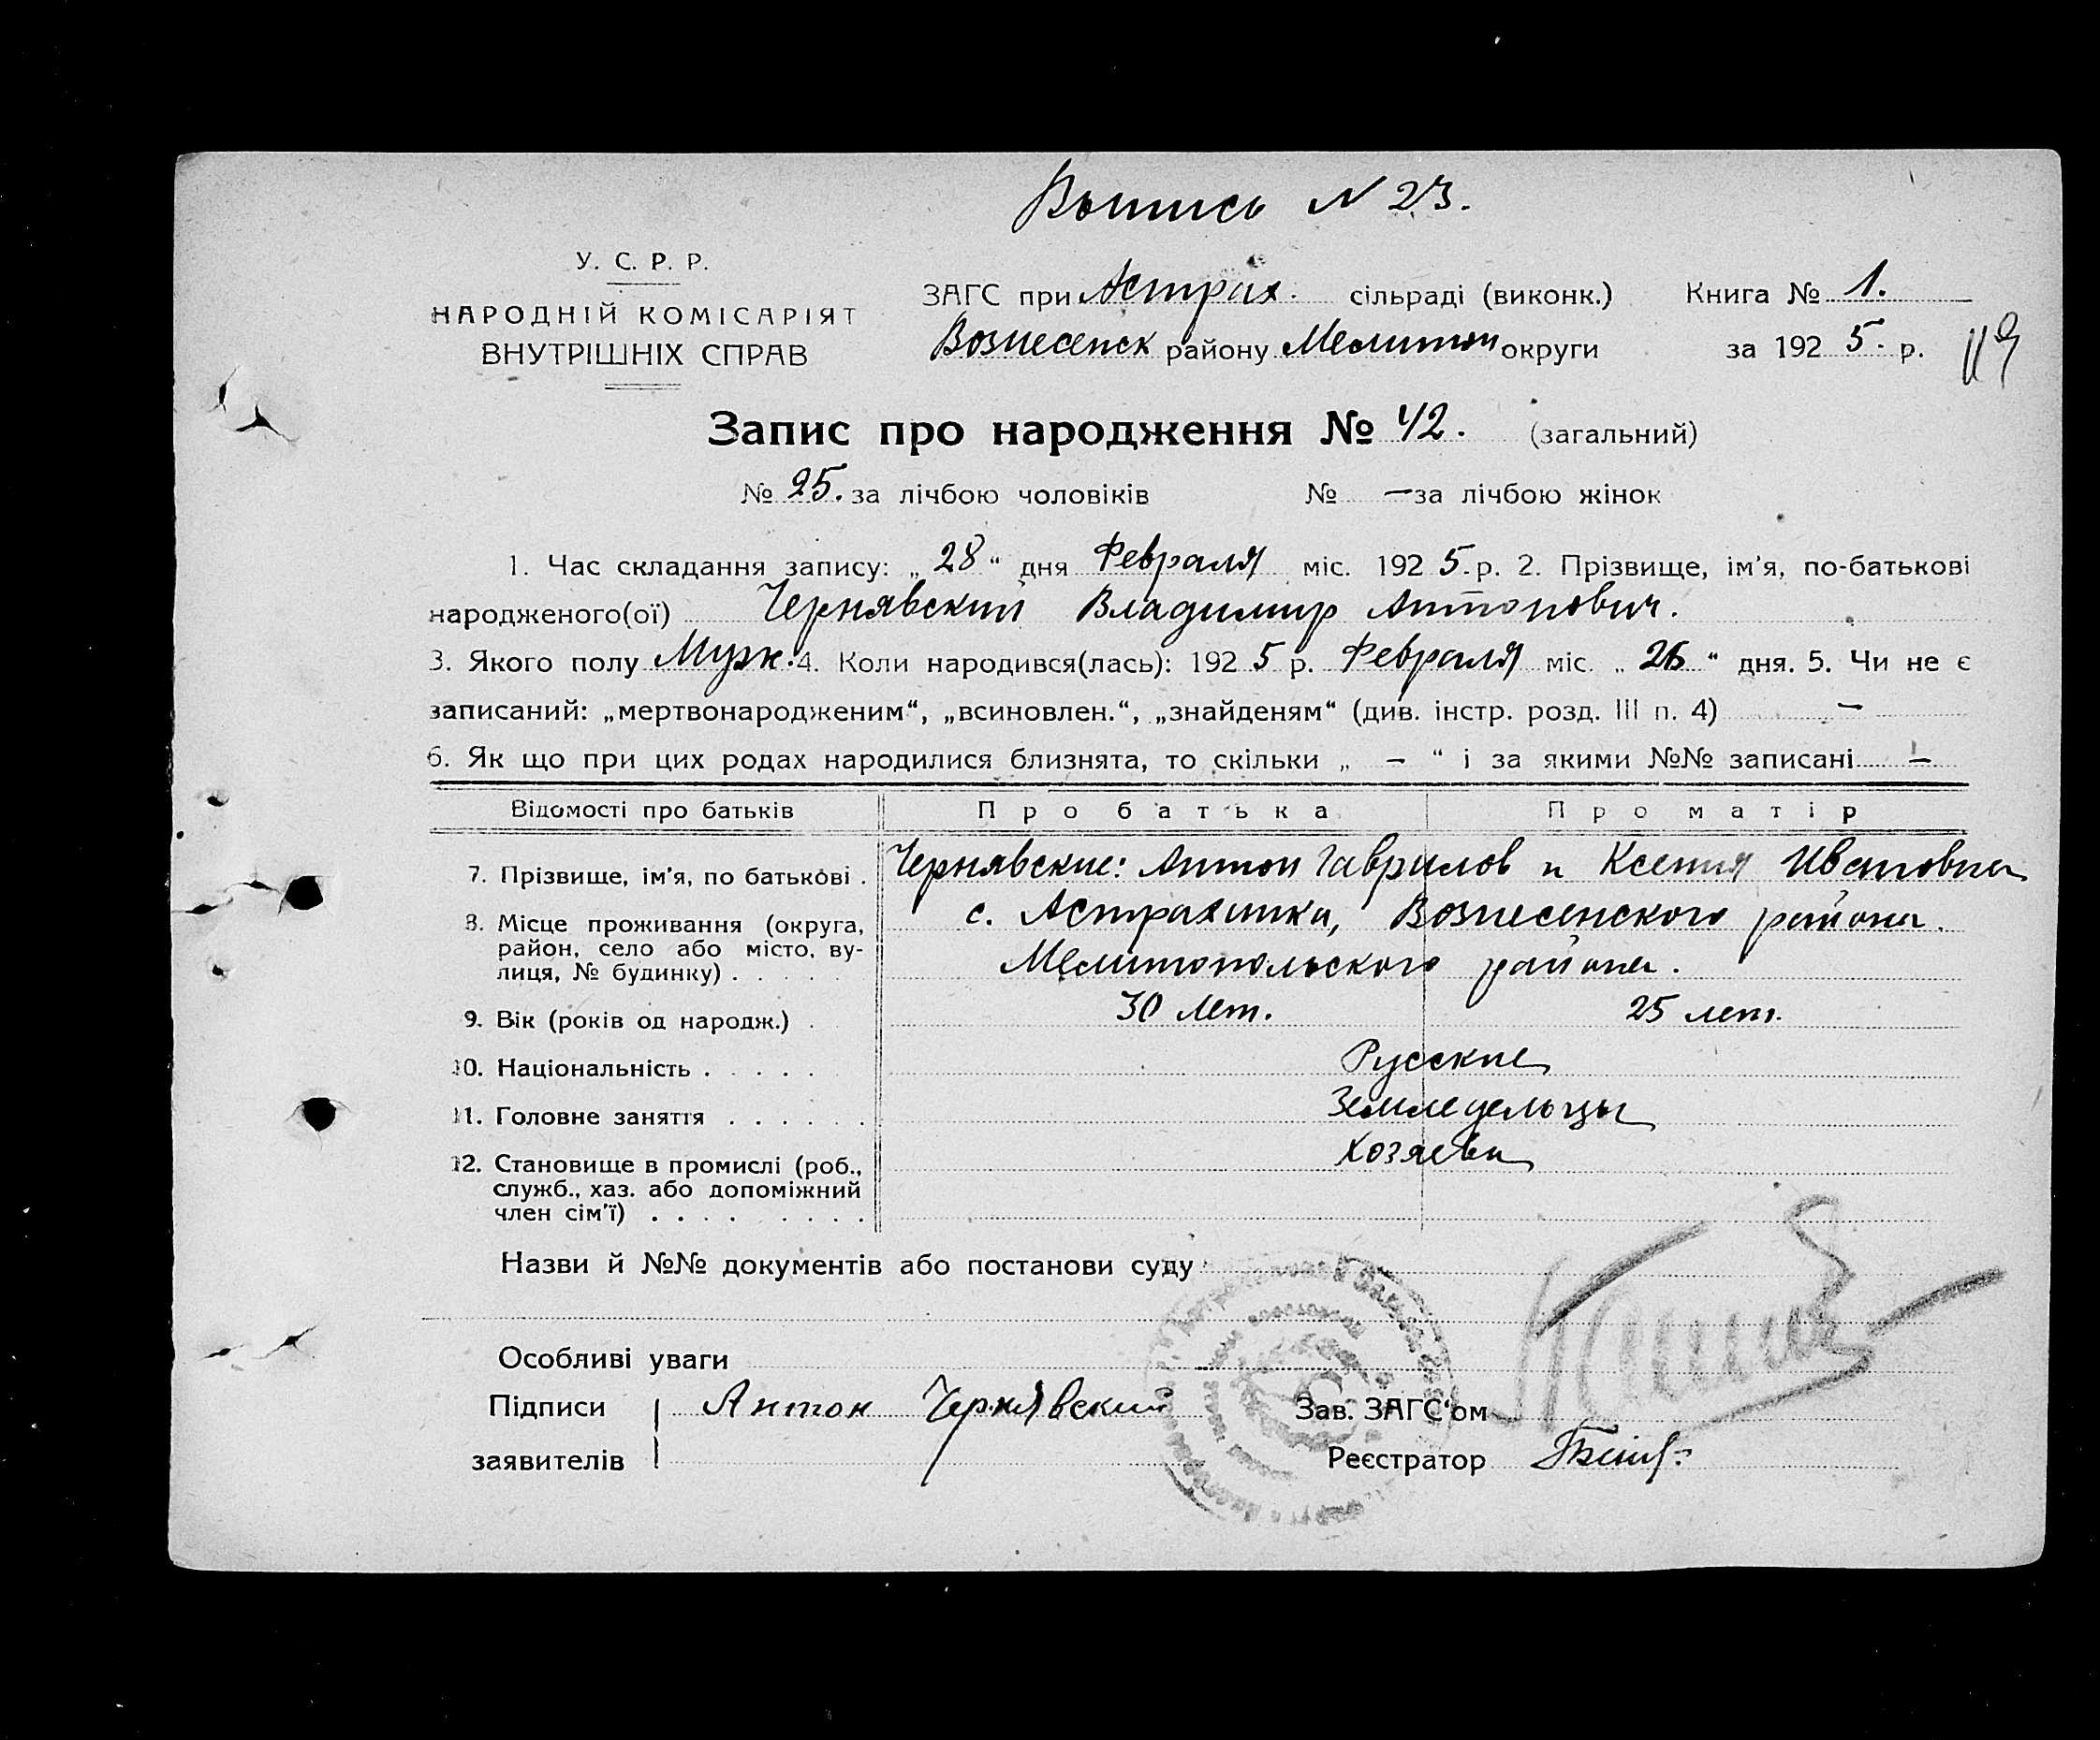 Выпись N 23.
У. С. Р. Р.
НАРОДНІЙ КОМІСАРІЯТ
ВНУТРІШНІХ СПРАВ
ЗАГС при Астрах. сільраді (виконк.) Книга № 1.
Вознесенск району Мелитоп округи за 192 5. р.
119
Запис про народження № 42. (загальний)
№ 25. за лічбою чоловіків № — за лічбою жінок
1. Час складання запису: „ 28 “ дня Февраля міс. 192 5. р. 2. Прізвище, ім'я, по-батькові
народженого(ої) Чернявский Владимир Антонович.
3. Якого полу Муж. 4. Коли народився(лась): 192 5 р. Февраля міс. „ 26 “ дня. 5. Чи не є
записаний: „мертвонародженим“, „всиновлен.“, „знайденям“ (див. інстр. розд. III п. 4) —
6. Як що при цих родах народилися близнята, то скільки „ — “ і за якими №№ записані —
Відомості про батьків Про батька Про матір
7. Прізвище, ім'я, по батькові . Чернявские: Антон Гаврилов и Ксения Ивановна
8. Місце проживання (округа, с. Астраханка, Вознесенского района.
район, село або місто, ву-
лиця, № будинку) . . . . . Мелитопольского района.
9. Вік (років од народж.) . 30 лет. 25 лет.
10. Національність . . . . . Русские
11. Головне заняття . . . . . . Земледельцы
12. Становище в промислі (роб., Хозяева
служб., хаз. або допоміжний
член сім'ї) . . . . . . . .
Назви й №№ документів або постанови суду
Особливі уваги
Підписи Антон Чернявский Зав. ЗАГС'ом
заявителів Реєстратор